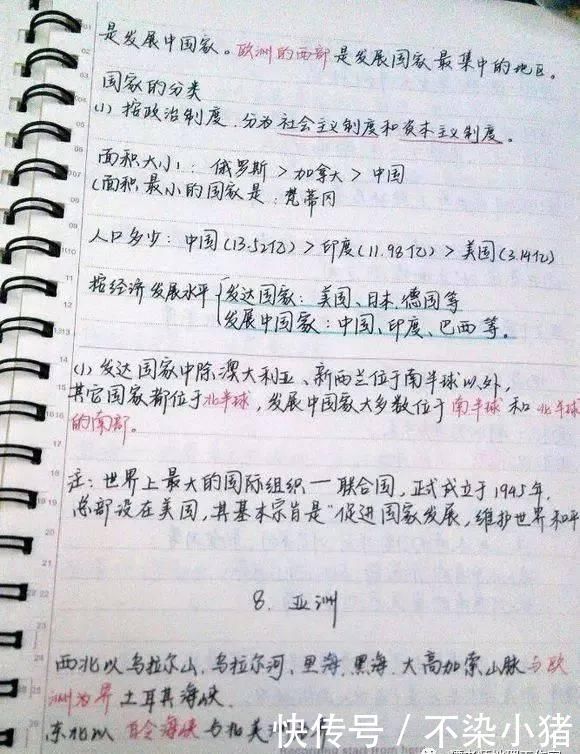 是发展中国家。欧洲的西部是发展国家最集中的地区。
国家的分类
(1) 按政治制度.分为社会主义制度和资本主义制度。
面积大小: 俄罗斯>加拿大>中国
(面积最小的国家是:梵蒂冈
人口多少: 中国(13.52亿)>印度(11.98亿)>美国(3.14亿)
按经济发展水平
发达国家: 美国、日本.德国等
发展中国家:中国、印度、巴西等.
(1)发达国家中除澳大利亚、新西兰位于南半球以外,
其它国家都位于北半球,发展中国家大多数位于南半球和北半球
的南部。
注: 世界上最大的国际组织一联合国,正式成立于1945年.
总部设在美国,其基本宗旨是“促进国家发展,维护世界和平
8. 亚洲
西北以乌拉尔山、乌拉尔河、里海、黑海、大高加索山脉与欧
洲为界 土耳其海峡.
东北以白令海峡与北美
快传号/不染小猪